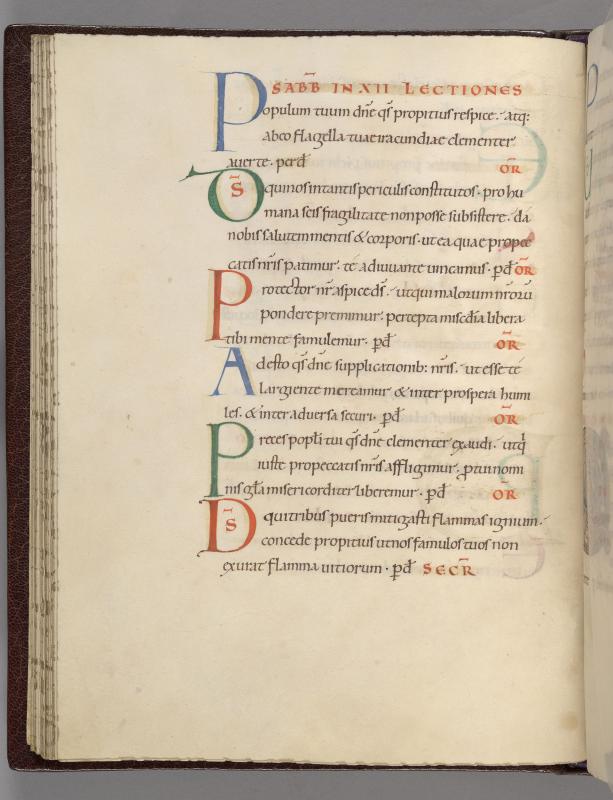 SABB̄ IN XII LECTIONES
Populum tuum dn̄e qs̄ propitius respice. atq:
ab eo flagella tuae iracundiae clementer
auerte. per đ OR̄
Ds̄ qui nos in tantis periculis constitutos. pro hu
mana scis fragilitate non posse subsistere. da
nobis salutem mentis & corporis. ut ea quae pro pec
catis nr̄is patimur. te adiuuante uincamus. p̄ đ OR̄
Protector nr̄ aspice ds̄. ut qui malorum nr̄orū
pondere premimur. percepta misc̄dia libera
tibi mente famulemur. p̄ đ OR̄
Adesto qs̄ dn̄e supplicationib: nr̄is. ut esse te
largiente mereamur & inter prospera humi
les. & inter aduersa securi. p̄ đ OR̄
Preces popl̄i tui qs̄ dn̄e clementer exaudi. ut q̄
iuste pro peccatis nr̄is affligimur. p̄ tui nomi
nis gl̄a misericorditer liberemur. p̄ đ OR̄
Ds̄ qui tribus pueris mitigasti flammas ignium.
concede propitius ut nos famulos tuos non
exurat flamma uitiorum. p̄ đ SECR̄